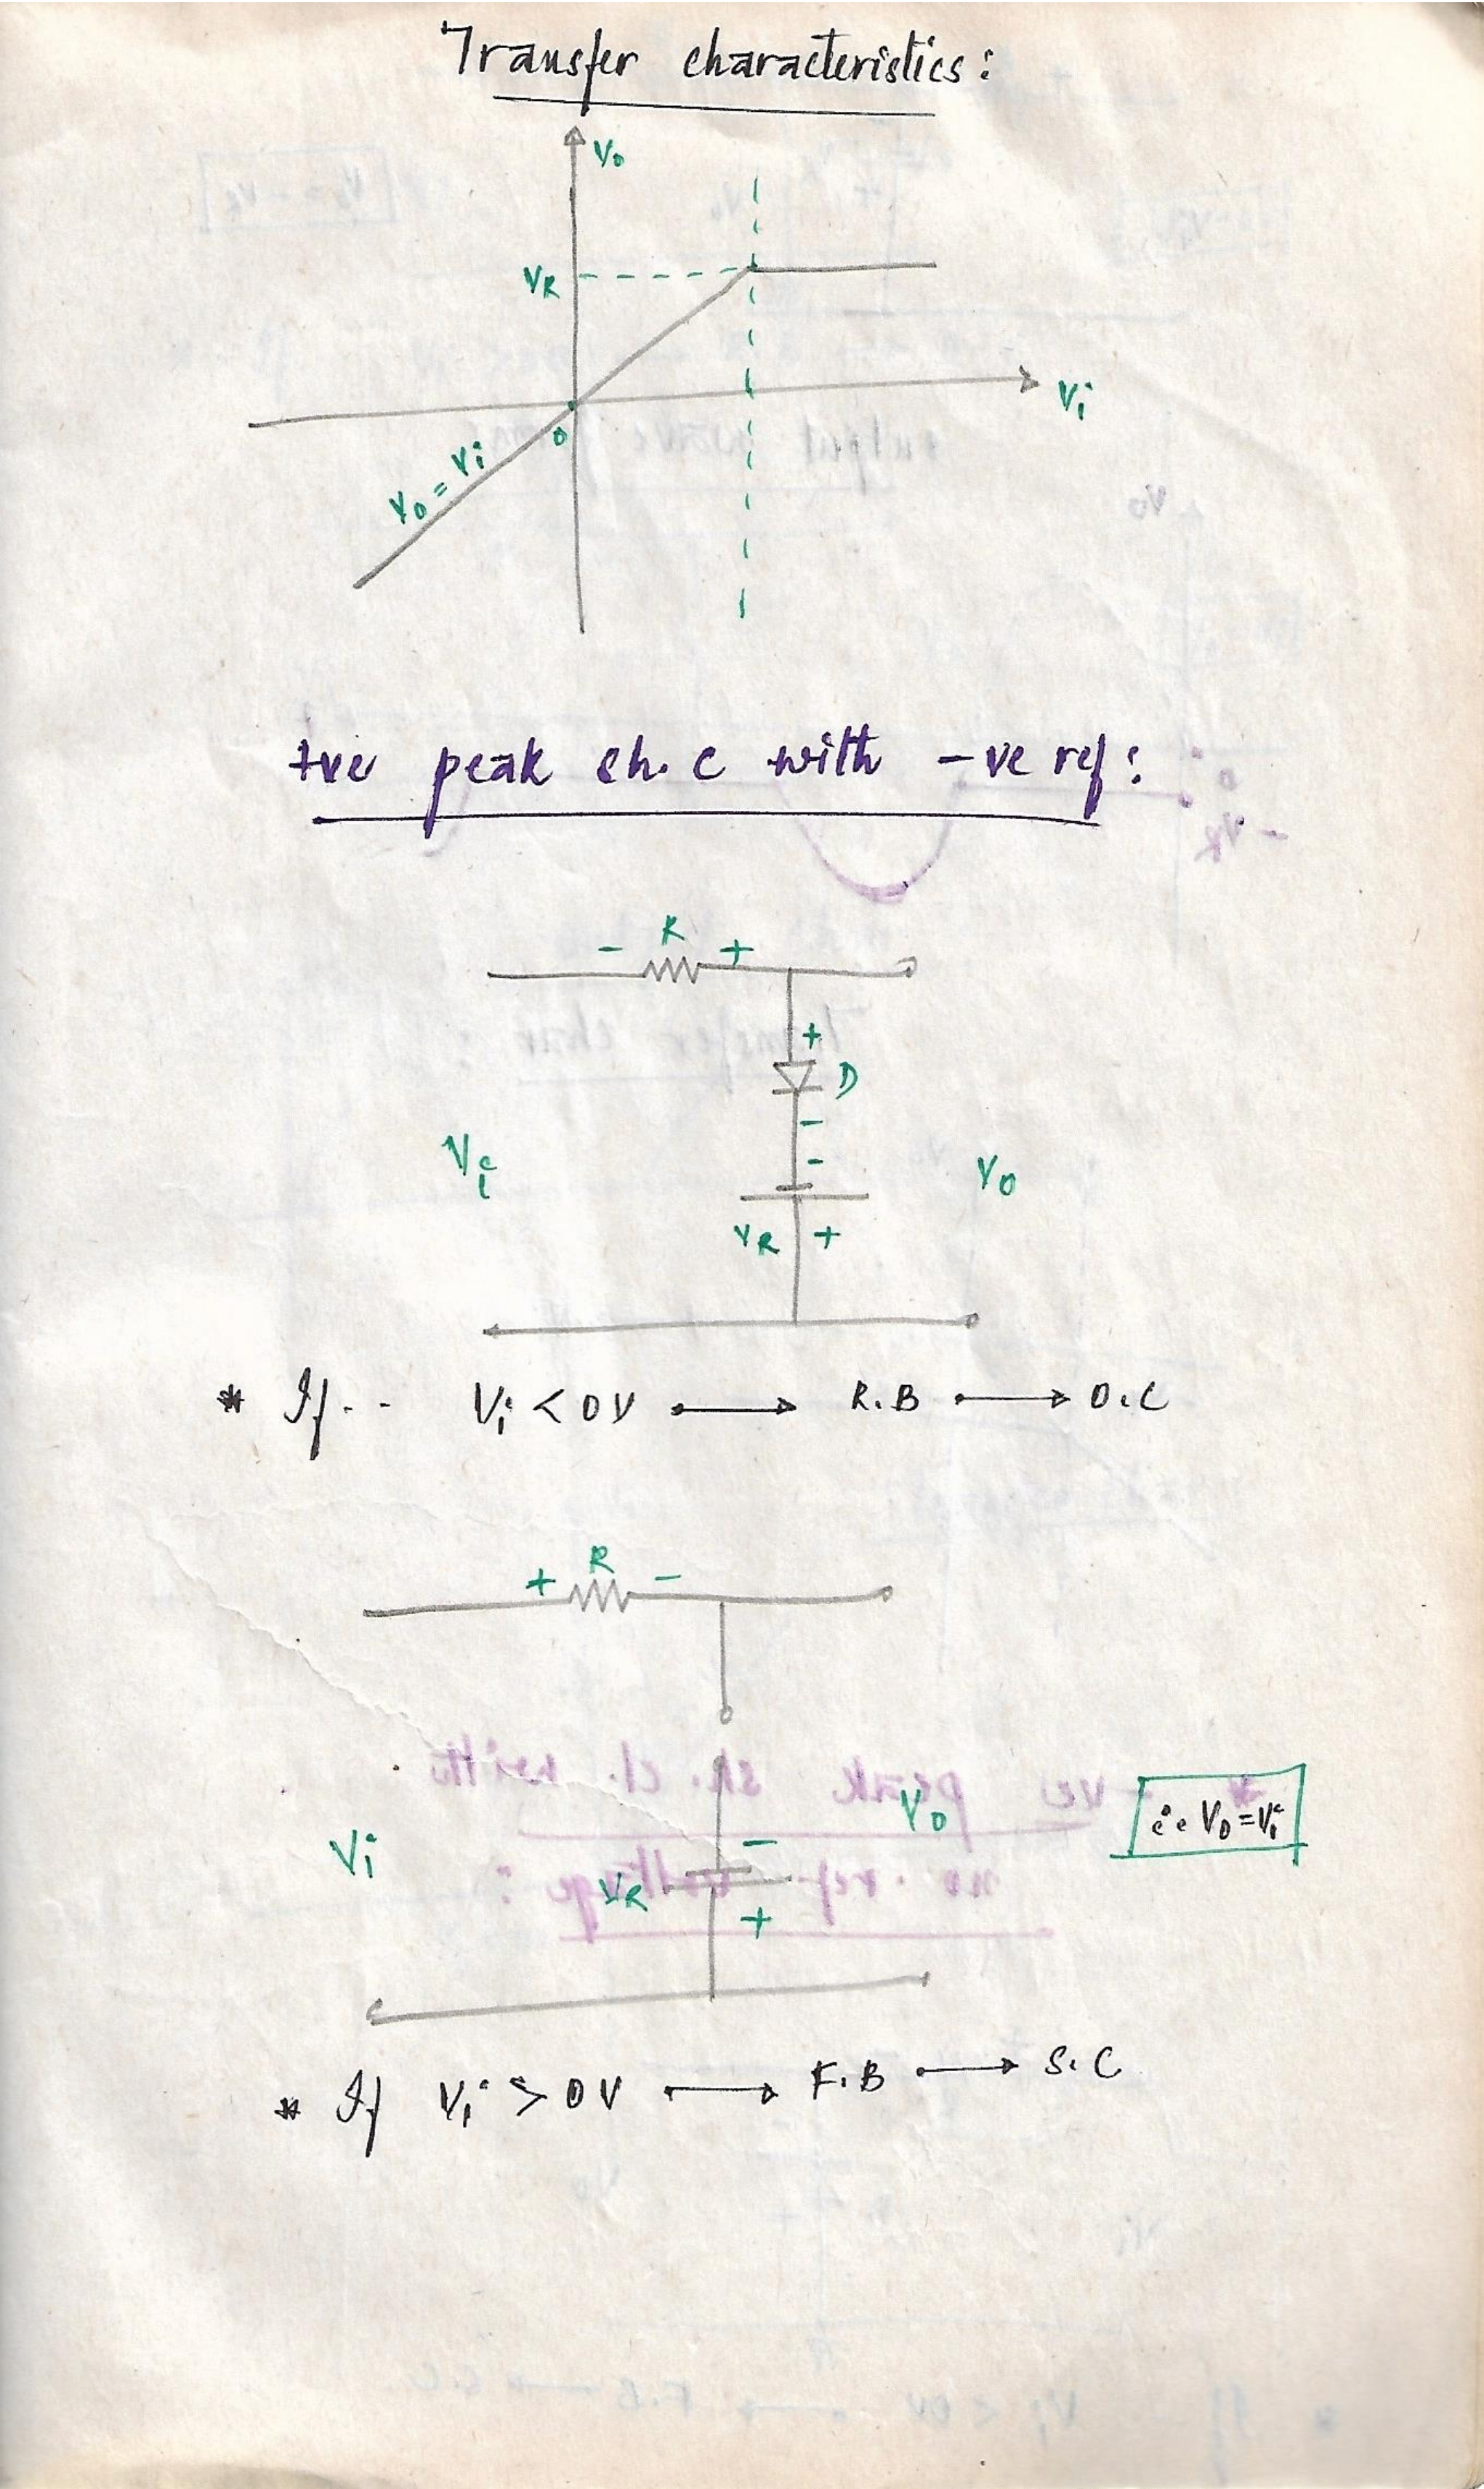 Transfer characteristics:
Vo
VR
Vi
0
Vo = Vi
+ve peak sh. c with -ve ref:
- R +
+
D
-
-
Vi
Vo
VR +
* If.. Vi < 0V → R.B → O.C
+ R -
Vi
Vo
-
VR
+
i.e Vo = Vi
* If Vi > 0V → F.B → S.C